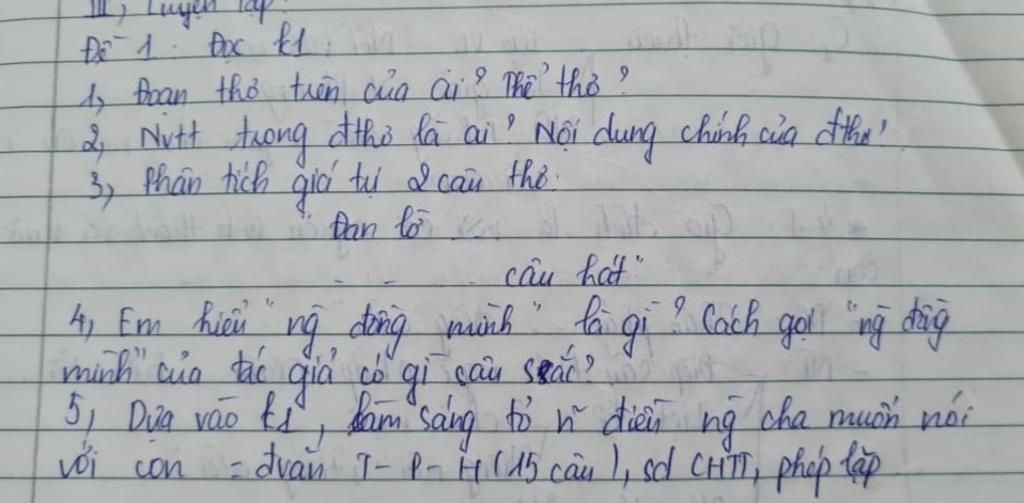 III, Luyện tập.
Đề 1: Đọc k1.
1, Đoạn thơ trên của ai? Thể thơ?
2, Nvtt trong đthơ là ai? Nội dung chính của đthơ?
3, Phân tích giá trị 2 câu thơ.
"Đan lờ ...
- - - câu hát"
4, Em hiểu "ng đồng mình" là gì? Cách gọi "ng đồng
mình" của tác giả có gì sâu sắc?
5, Dựa vào k1, làm sáng tỏ n~ điều ng cha muốn nói
với con = đvăn T - P - H (15 câu), sd CHTT, phép lặp.